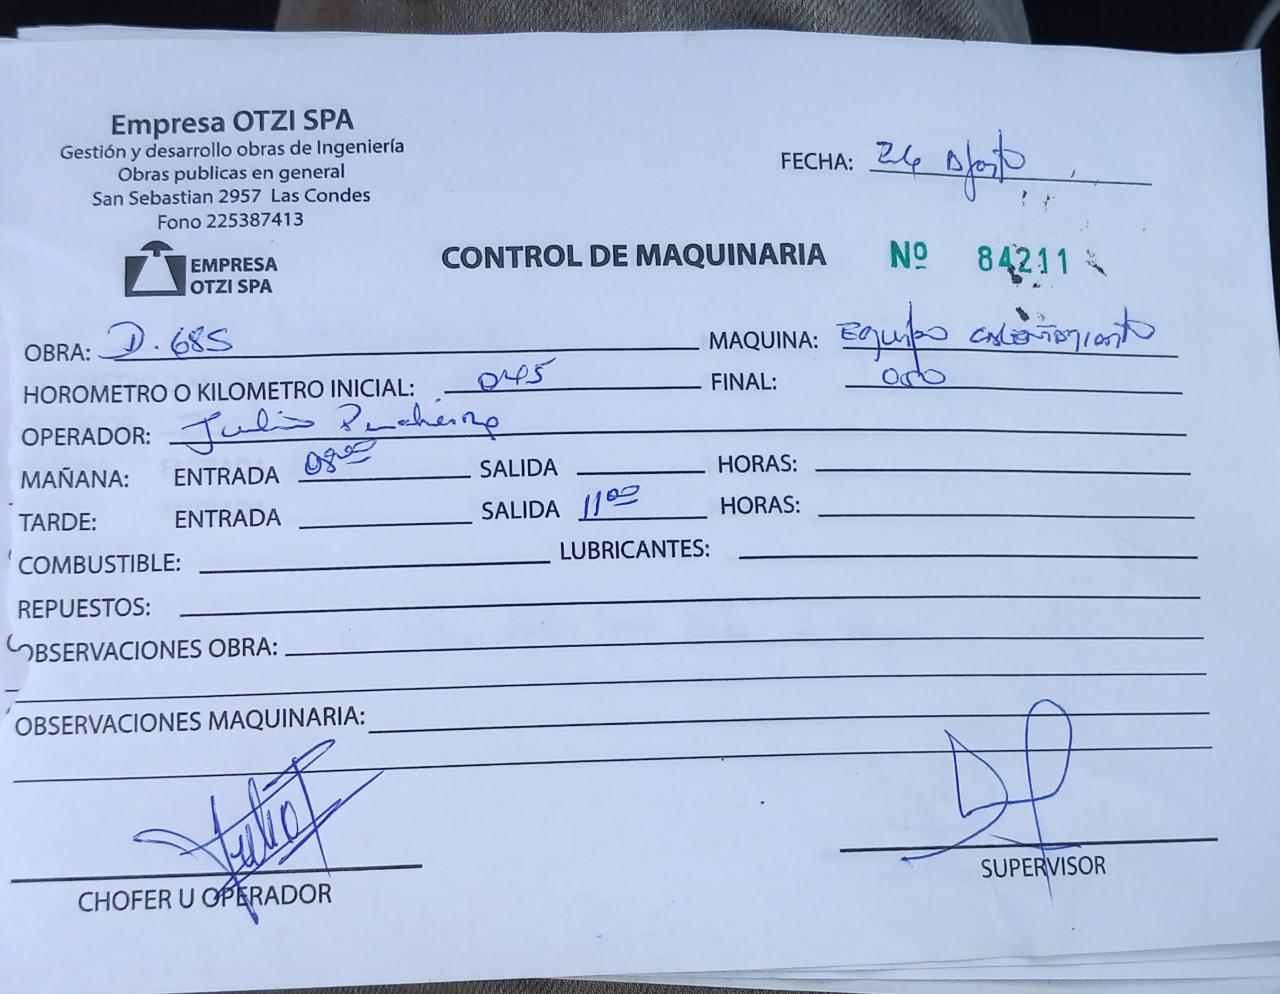 Empresa OTZI SPA
Gestión y desarrollo obras de Ingeniería
Obras publicas en general
San Sebastian 2957 Las Condes
Fono 225387413
EMPRESA
OTZI SPA
FECHA: 24 Agosto
CONTROL DE MAQUINARIA Nº 84211
OBRA: D. 685 MAQUINA: Equipo
HOROMETRO O KILOMETRO INICIAL: 045 FINAL: 050
OPERADOR: Julio
MAÑANA: ENTRADA 08:00 SALIDA HORAS:
TARDE: ENTRADA SALIDA 11:00 HORAS:
COMBUSTIBLE: LUBRICANTES:
REPUESTOS:
OBSERVACIONES OBRA:
OBSERVACIONES MAQUINARIA:
CHOFER U OPERADOR
SUPERVISOR